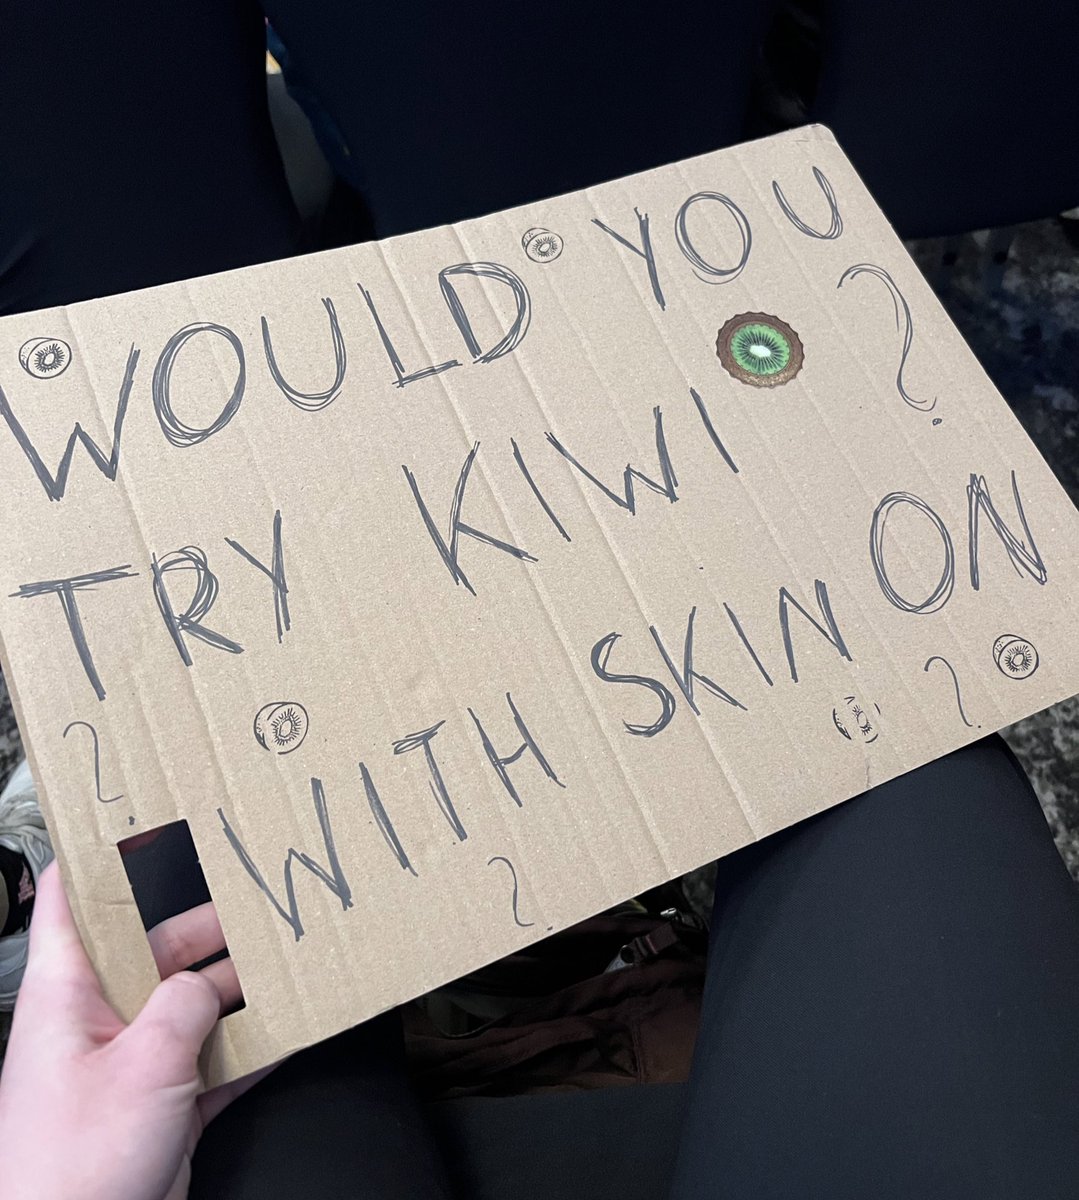 WOULD YOU ?
TRY KIWI
WITH SKIN ON
? ? ?